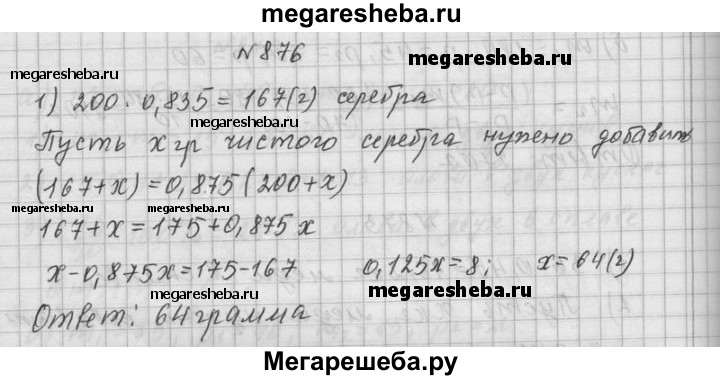 megaresheba.ru
N 876
megaresheba.ru
megaresheba.ru
1) 200 · 0,835 = 167(г) серебра
megaresheba.ru
Пусть х гр чистого серебра нужно добавить
(167+x) = 0,875 (200+x)
megaresheba.ru
megaresheba.ru
megaresheba.ru
167+x = 175+0,875 x
x-0,875x = 175-167 0,125x = 8; x = 64(г)
megaresheba.ru
megaresheba.ru
Ответ: 64 грамма
megaresheba.ru
Мегарешеба.ру